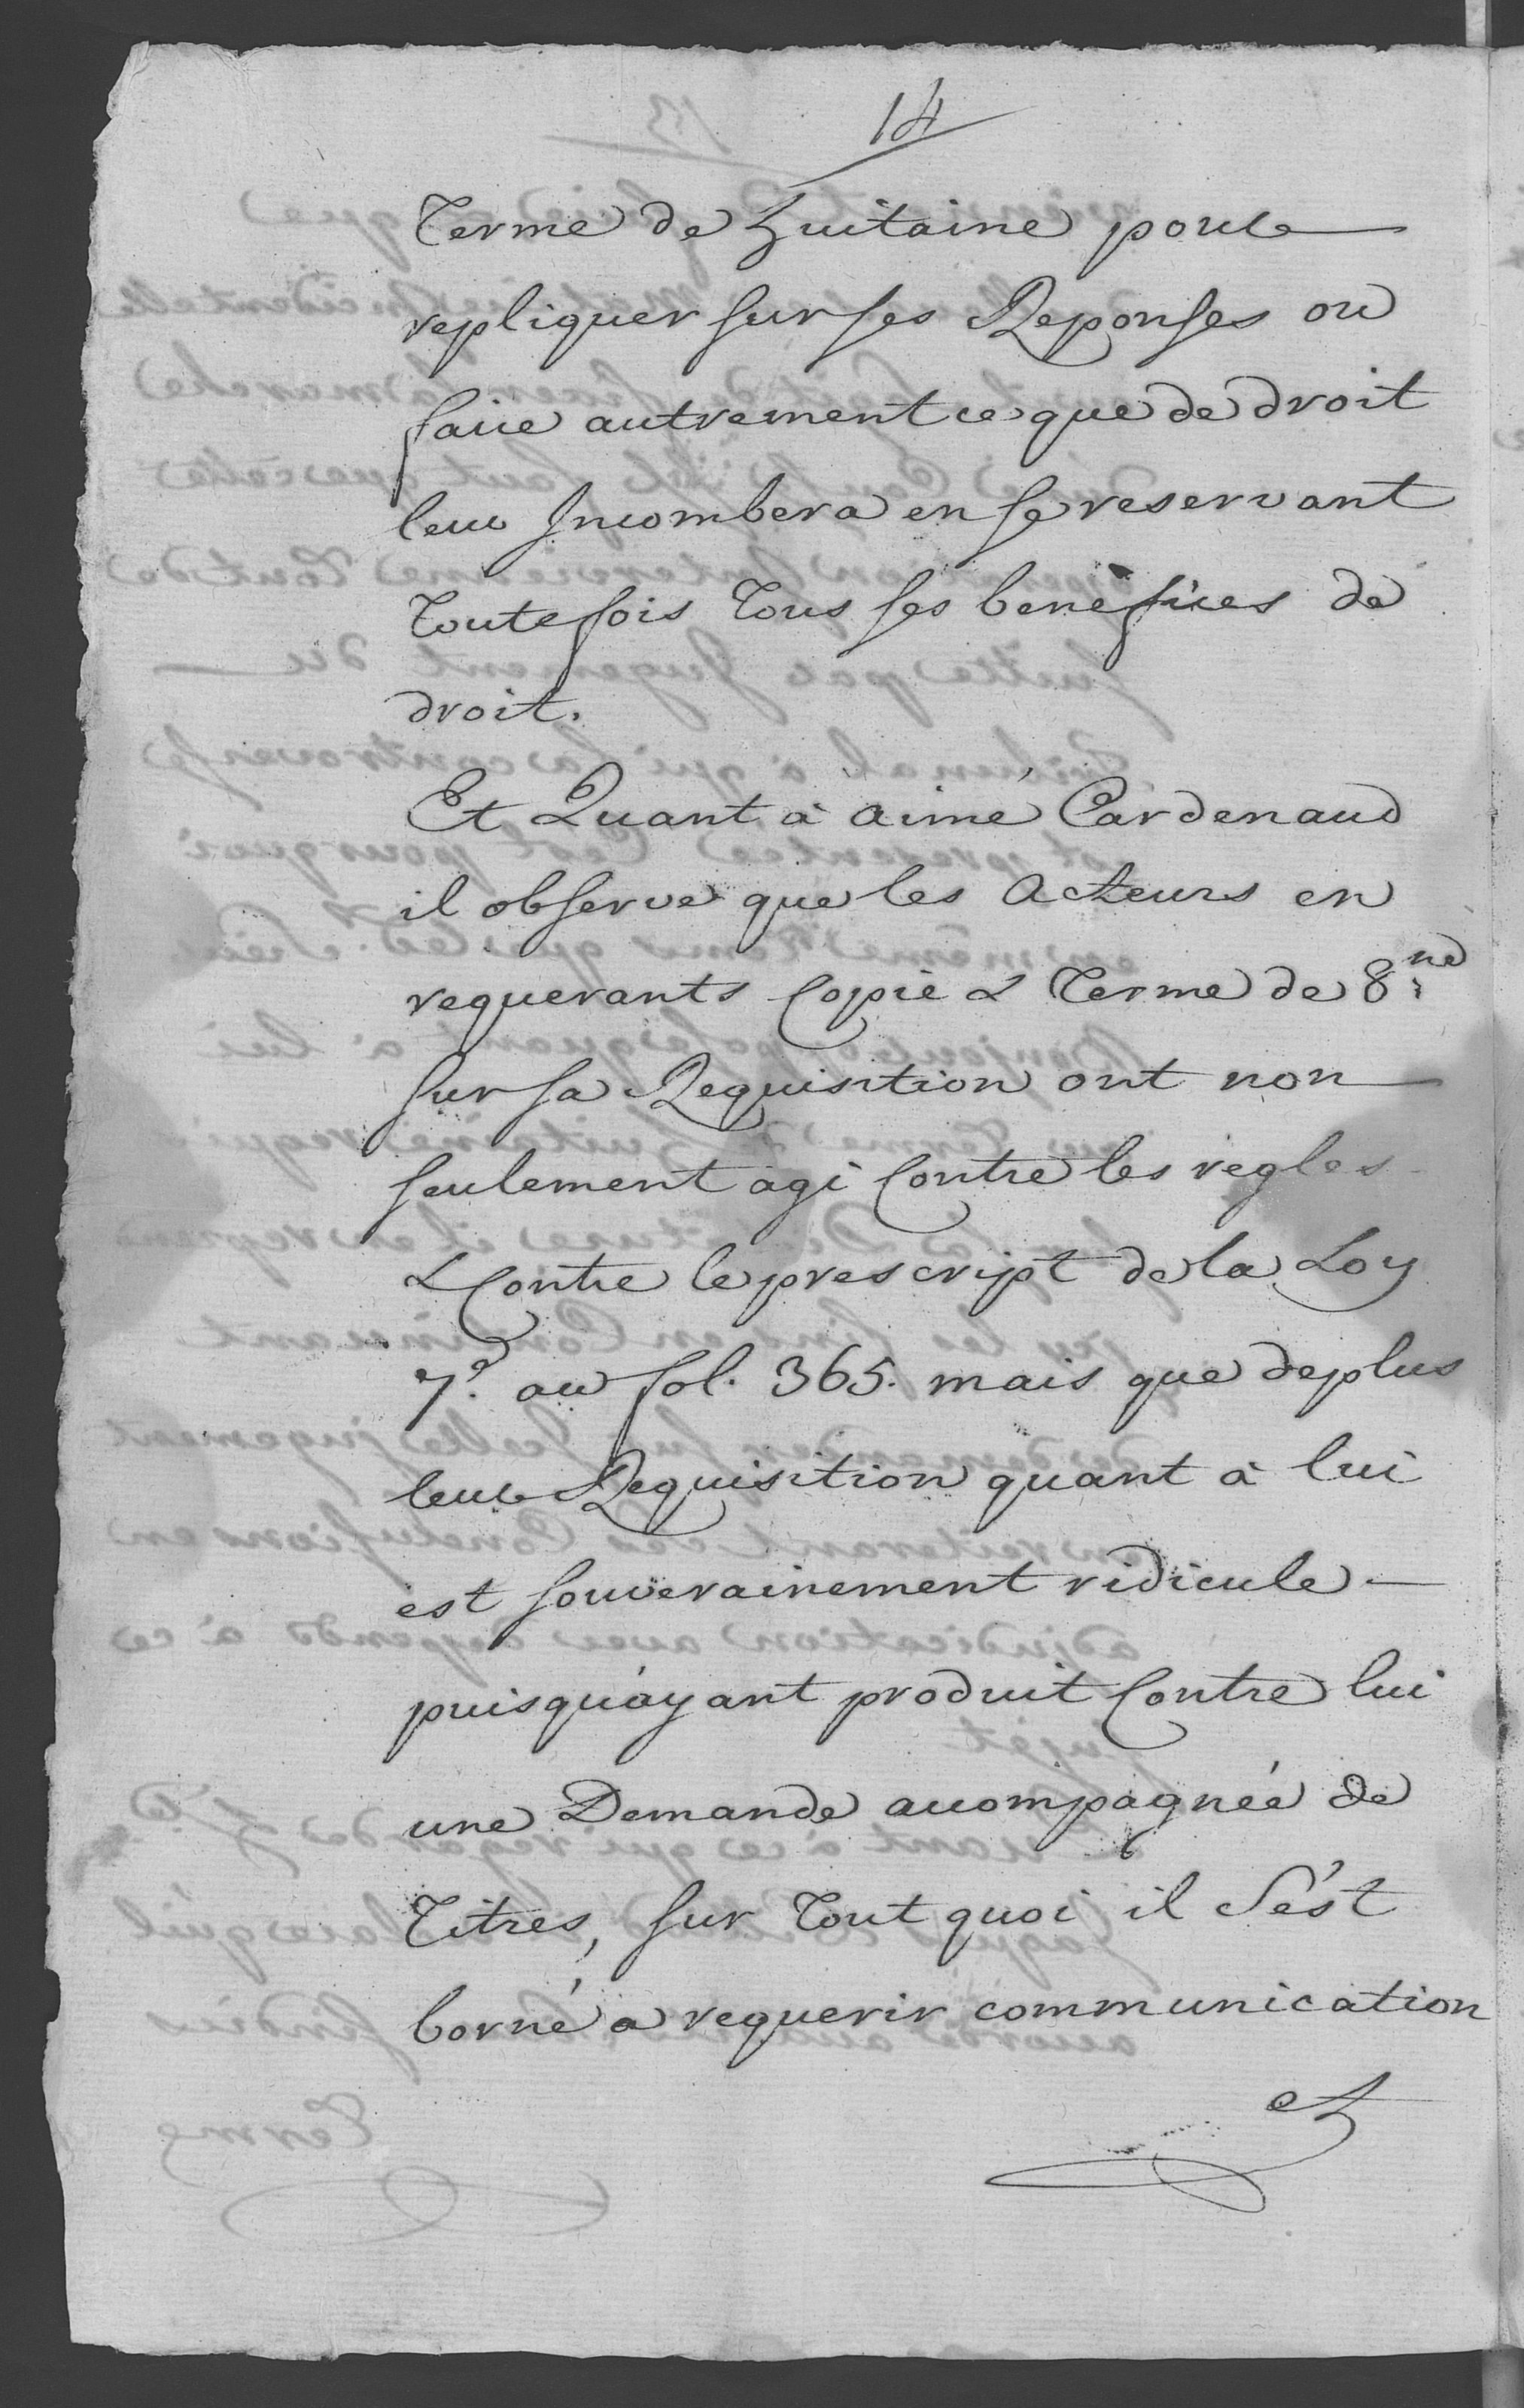 14
Terme de huitaine pour
repliquer sur ses Reponses ou
faire autrement ce que de droit
leur Incombera en se reservant
Toutefois Tous ses benéfices de
droit.
Et Quant à aimé Cardenaud
il observe que les Acteurs en
requerants Copie & Terme de 8.ne
sur sa Requisition ont non
seulement agi Contre les regles
& Contre le prescript de la Loy
7.e au fol. 365. mais que deplus
leur Requisition quant à lui
est souverainement ridicule
puisqu'ayant produit Contre lui
une Demande accompagnée de
Titres, sur Tout quoi il S'ést
borné a requerir communication
et